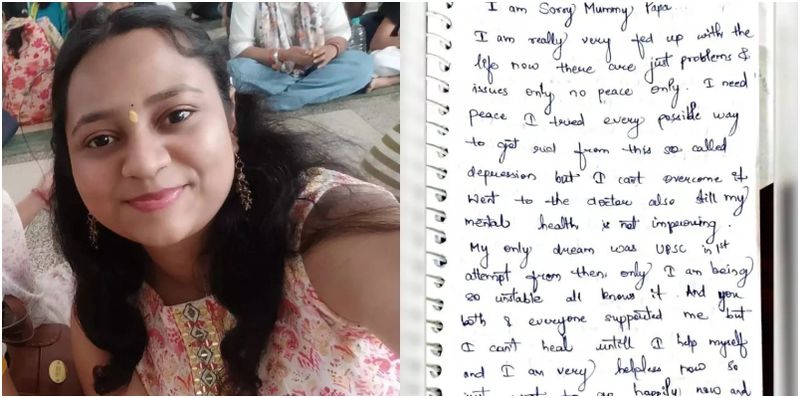 I am Sorry Mummy Papa...
I am really very fed up with the
life now there are just problems &
issues only no peace only. I need
peace I tried every possible way
to get rid from this so called
depression but I can't overcome it
Went to the doctor also still my
mental health is not improving.
My only dream was UPSC in 1st
attempt from then, only I am being
so unstable all know it. And you
both & everyone supported me but
I can't heal untill I help myself
and I am very helpless now so
just want to go happily now and